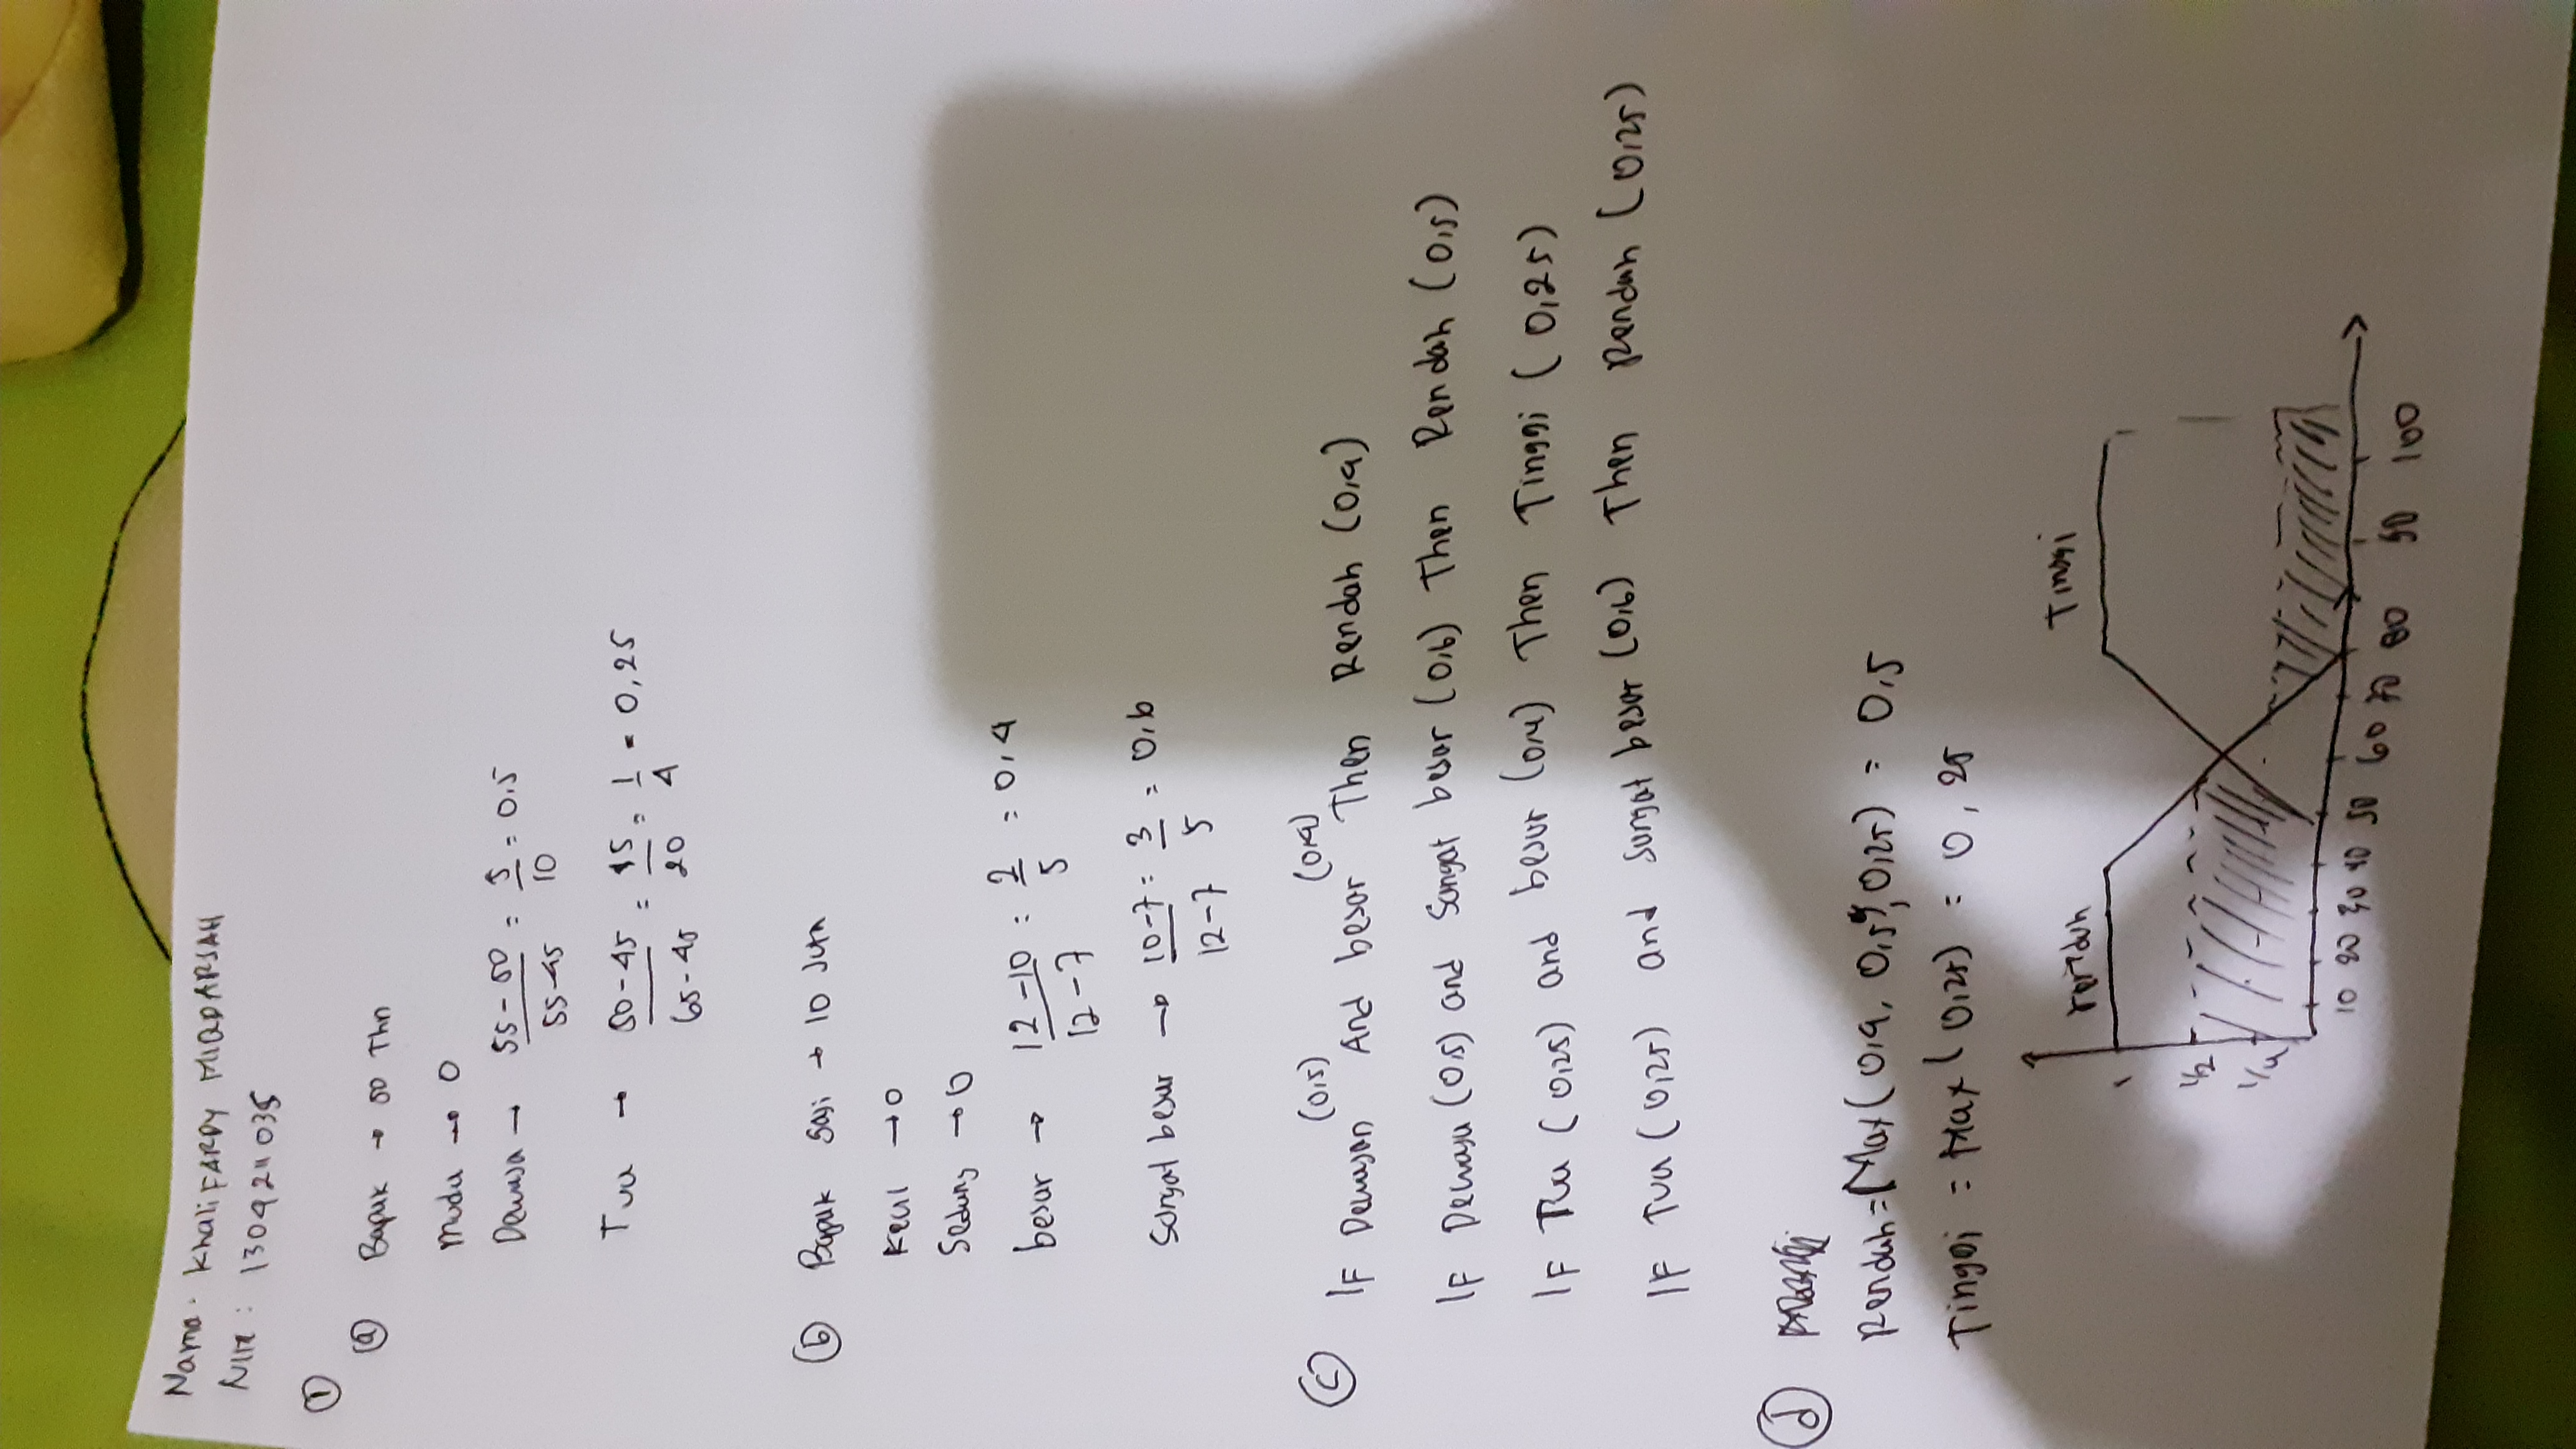 Nama . KhaliFARDY MIQDARSAH
NIM : 1304211035
①
ⓐ Bapak → 50 Thn
Muda → 0
Dewasa → 55-50 / 55-45 = 5/10 = 0,5
Tua → 50-45 / 65-45 = 5/20 = 1/4 = 0,25
ⓑ Bapak Gaji → 10 Juta
Kecil → 0
Sedang → 0
besar → 12-10 / 12-7 = 2/5 = 0,4
Sangat besar → 10-7 / 12-7 = 3/5 = 0,6
ⓒ IF Dewasan (0,5) And besar (0,4) Then Rendah (0,4)
IF Dewasa (0,5) and Sangat besar (0,6) Then Rendah (0,5)
IF Tua (0,25) and besar (0,4) Then Tinggi (0,25)
IF Tua (0,25) and Sangat besar (0,6) Then Rendah (0,25)
ⓓ
Rendah = Max (0,4, 0,5, 0,25) = 0,5
Tinggi = Max (0,25) = 0,25
rendah Tinggi
1
1/2
1/4
10 20 30 40 50 60 70 80 90 100